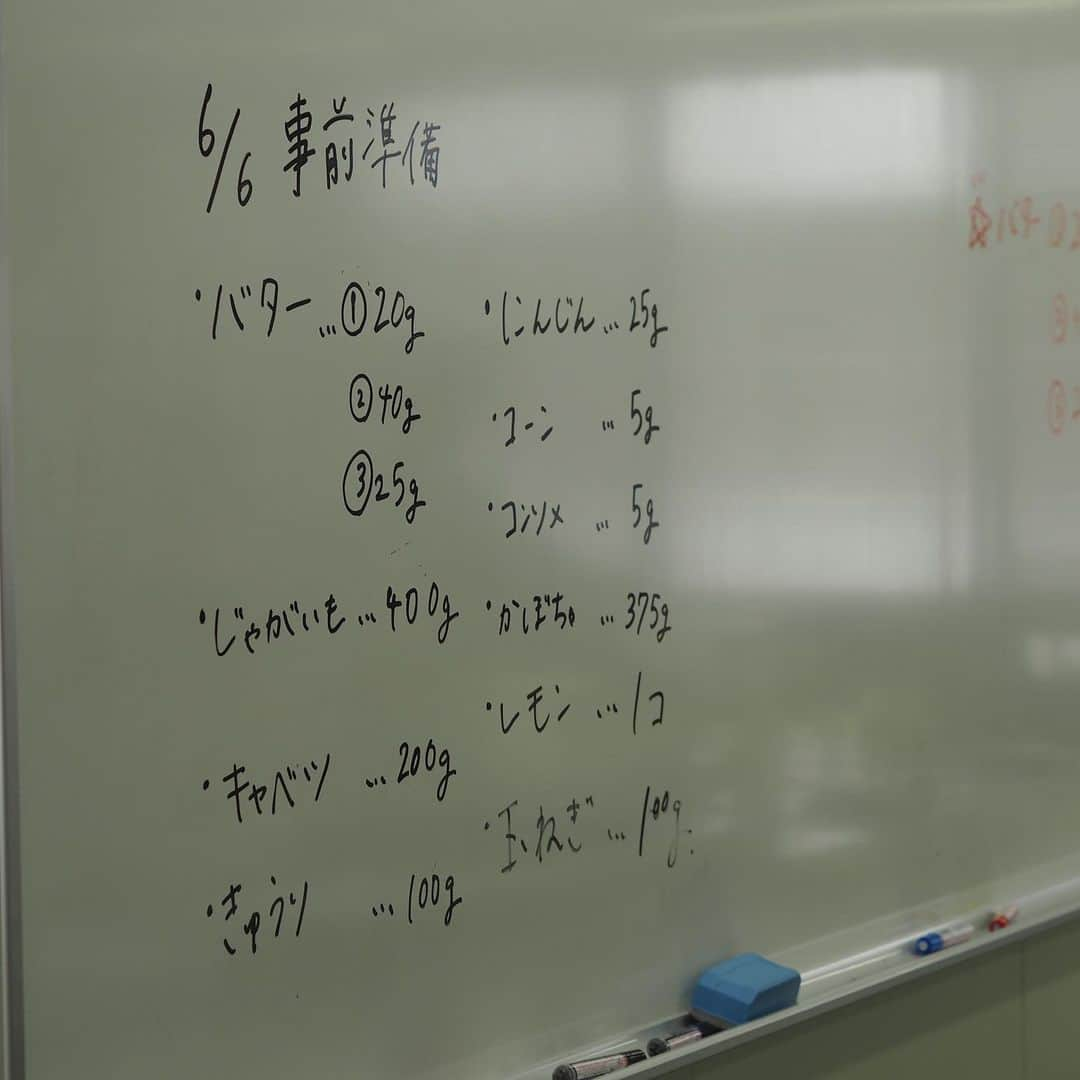 6/6 事前準備
・バター…①20g
②40g
③25g
・じゃがいも…400g
・キャベツ…200g
・きゅうり…100g
・にんじん…25g
・コーン…5g
・コンソメ…5g
・かぼちゃ…375g
・レモン…1コ
・玉ねぎ…100g
☆バター①2